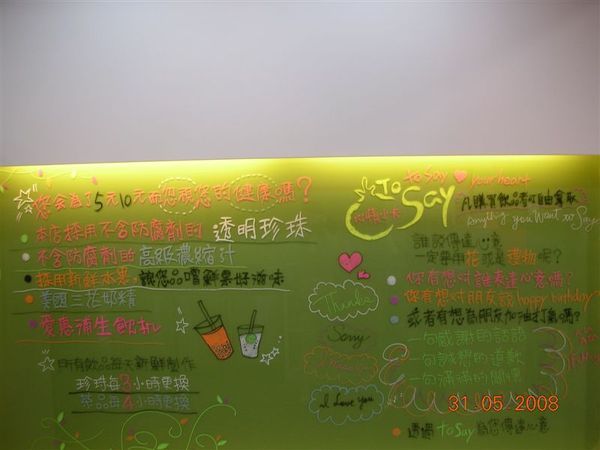 您會為了5元10元而忽視您的健康嗎？
本店採用不含防腐劑的 透明珍珠
不含防腐劑的高級濃縮汁
採用新鮮水果 讓您品嚐鮮果好滋味
美國三花奶精
所有飲品每天新鮮製作
珍珠每3小時更換
茶品每4小時更換
To Say
to Say your heart
凡購買飲品者可自由拿取
anything you Want to Say
誰說傳達心意
一定要用花或是禮物呢？
你有想對誰表達心意嗎？
你有想對朋友說 happy birthday
或者有想為朋友加油打氣嗎？
Thanks
Sorry
I Love you
一句感謝的話語
一句誠懇的道歉
一句滿滿的關懷
透過 to Say 為您傳達心意
31.05.2008